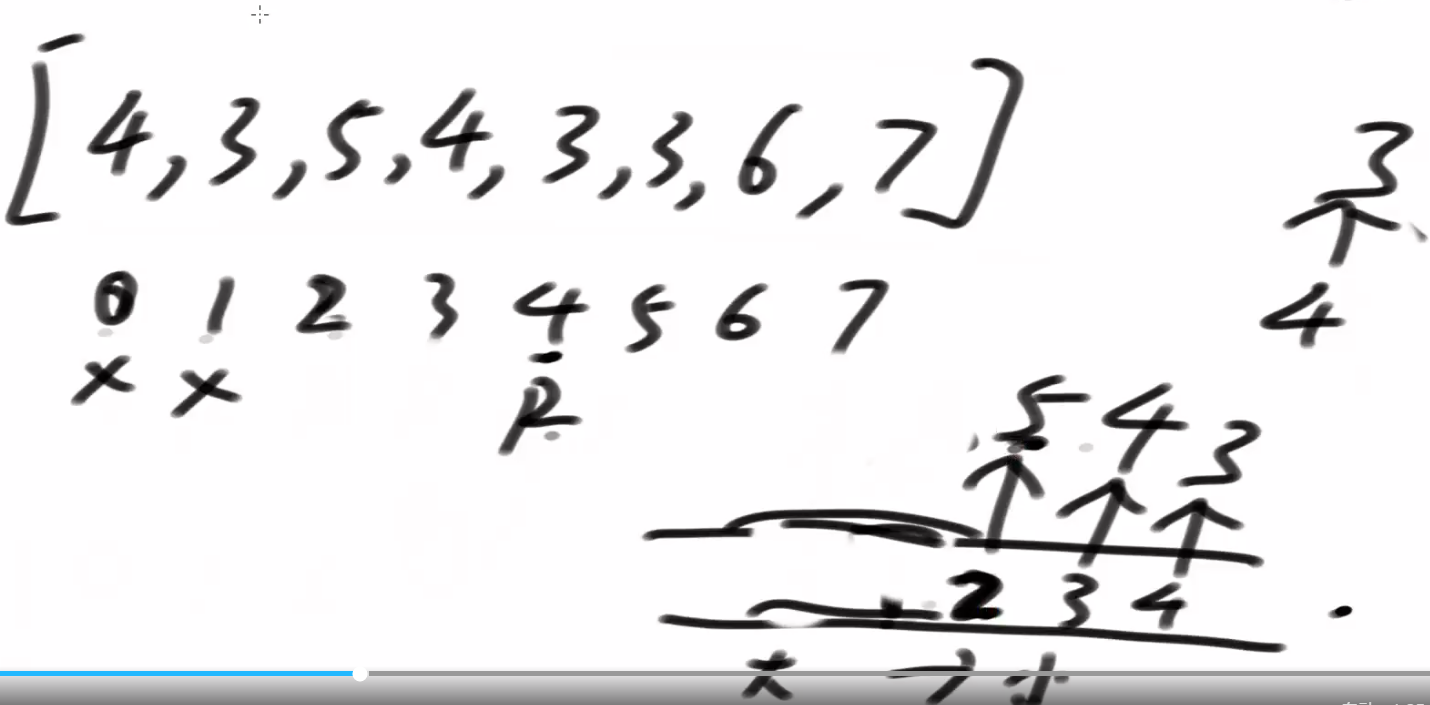 [4,3,5,4,3,3,6,7]
0 1 2 3 4 5 6 7
x x R
3
4
5 4 3
2 3 4
x